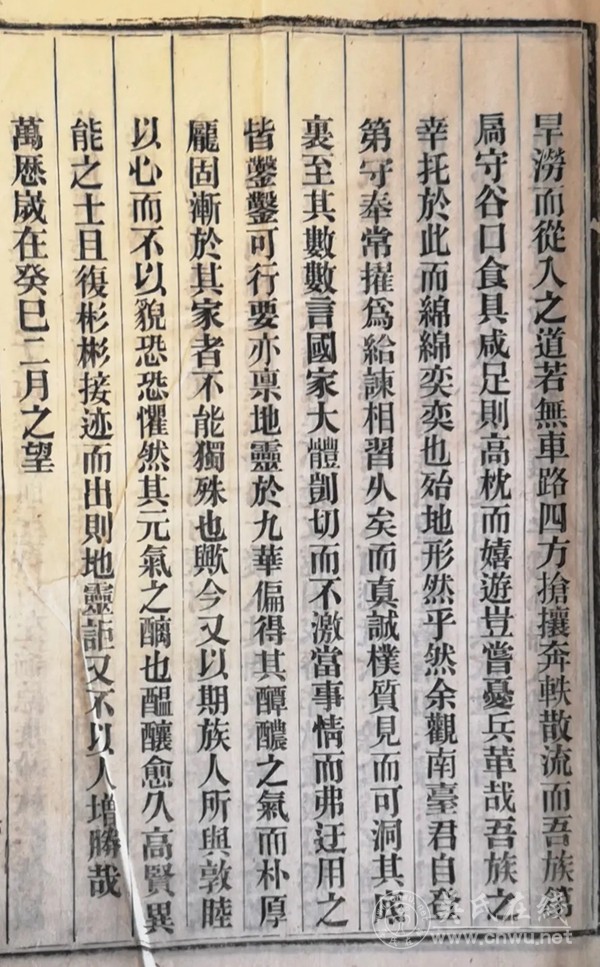 旱澇而從入之道若無車路四方搶攘奔軼散流而吾族第
扃守谷口食具咸足則高枕而嬉遊豈嘗憂兵革哉吾族之
幸托於此而綿綿奕奕也殆地形然乎然余觀南臺君自登
第守奉常擢爲給諫相習乆矣而真誠樸質見而可洞其底
裏至其數數言國家大體剴切而不激當事情而弗迂用之
皆鑿鑿可行要亦禀地靈於九華偏得其醰醲之氣而朴厚
龎固漸於其家者不能獨殊也歟今又以期族人所與敦睦
以心而不以貌恐恐懼然其元氣之醨也醞釀愈久高賢異
能之士且復彬彬接迹而出則地靈詎又不以人增勝哉
萬歷歲在癸巳二月之望
吴氏在线
www.cnwu.net